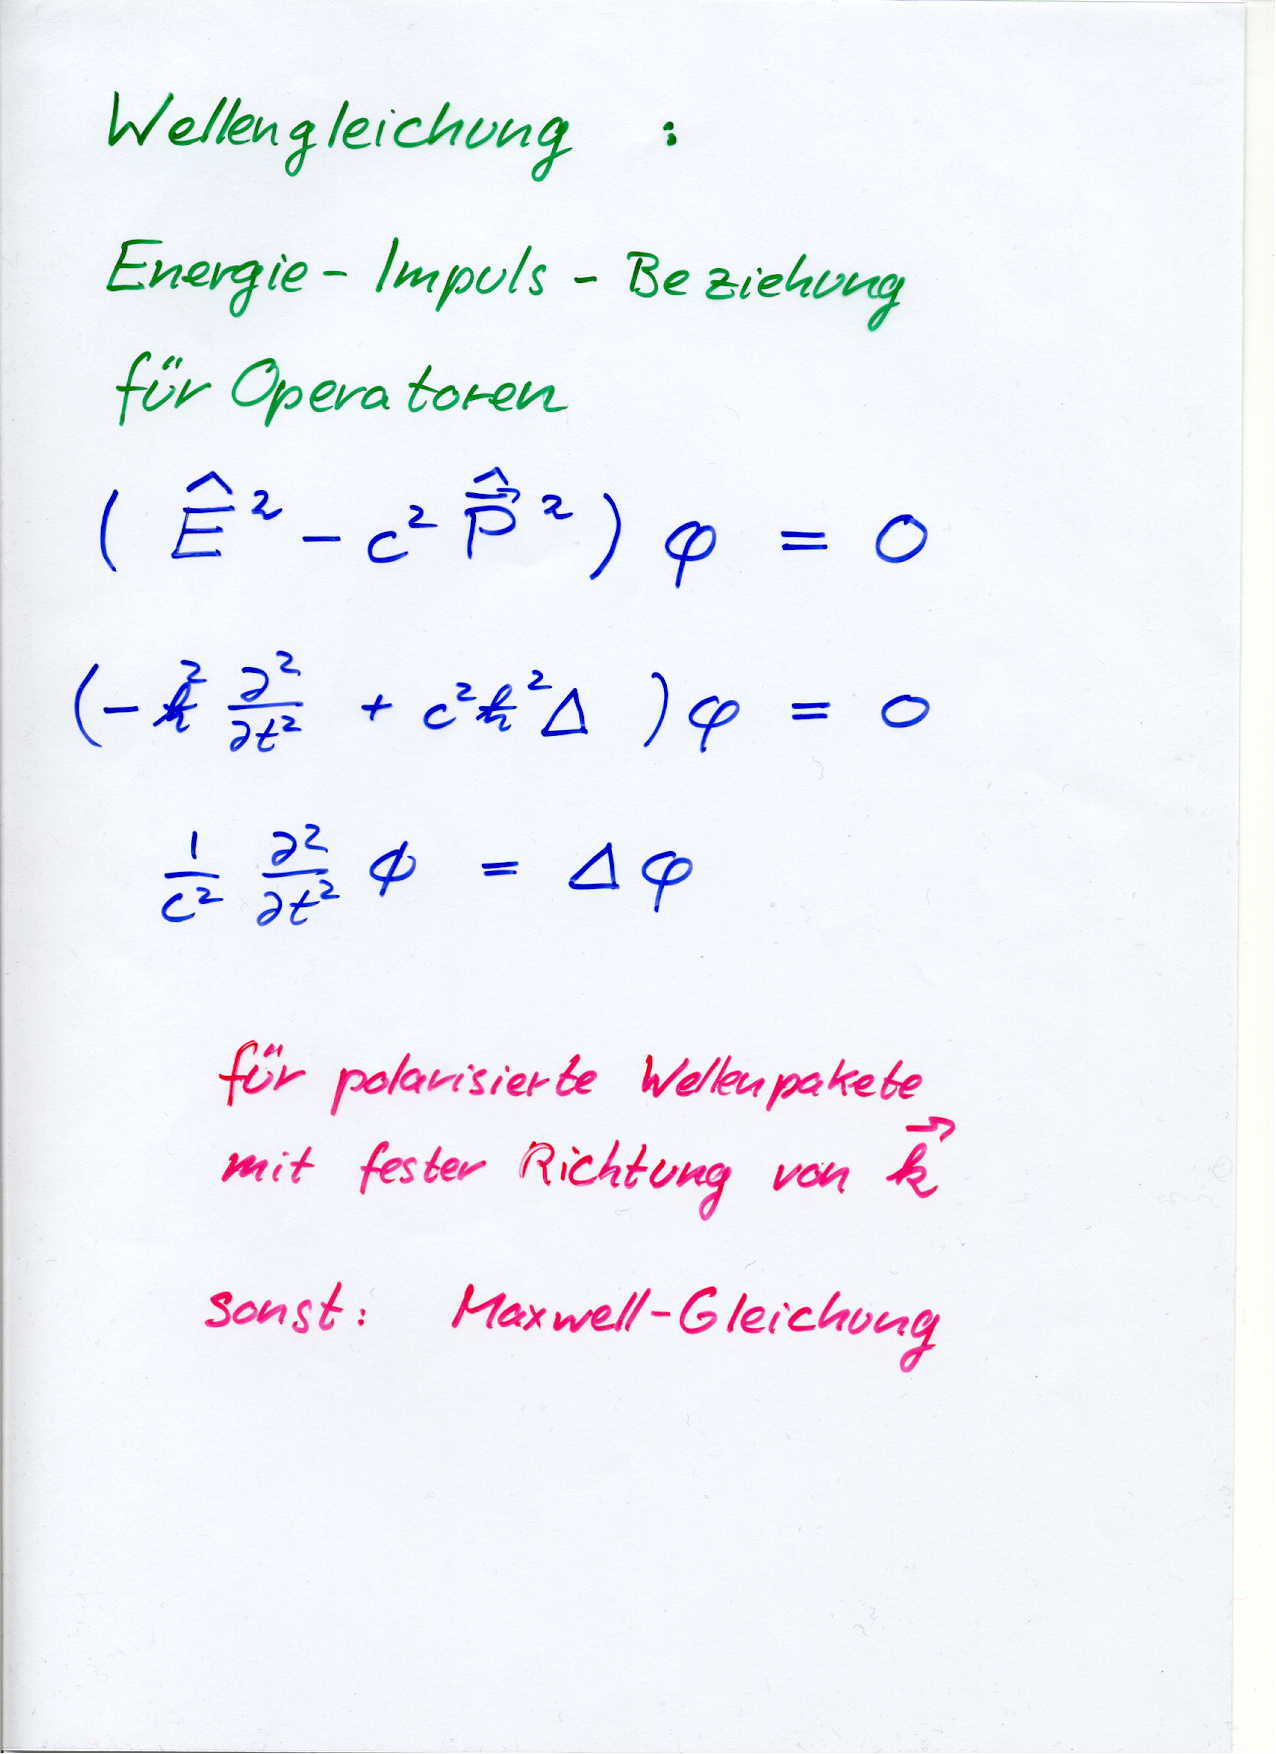 Wellengleichung :
Energie-Impuls-Beziehung
für Operatoren
( Ê² - c² \hat{\vec{P}}² ) φ = 0
(-ħ² ∂²/∂t² + c²ħ²Δ ) φ = 0
1/c² ∂²/∂t² ϕ = Δφ
für polarisierte Wellenpakete
mit fester Richtung von \vec{k}
sonst: Maxwell-Gleichung